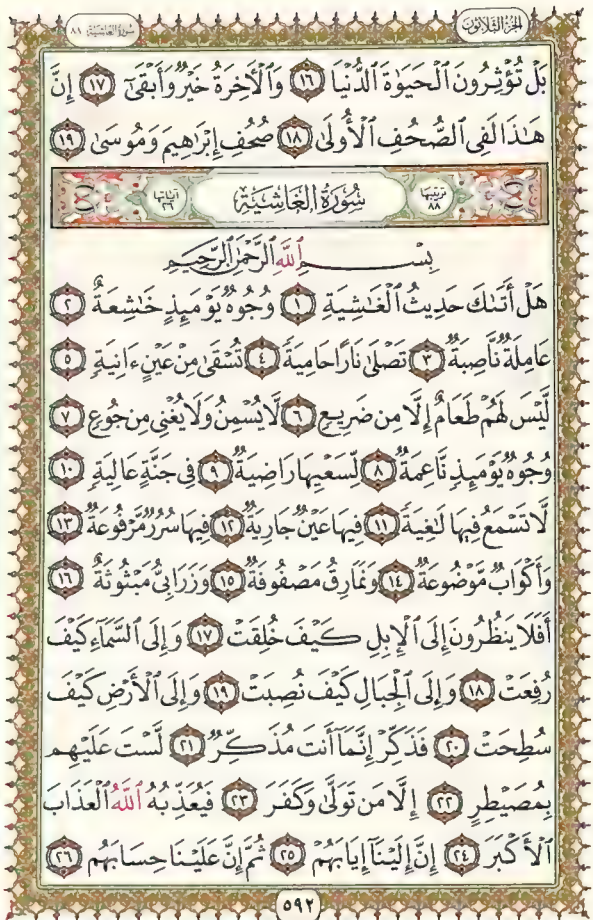 الجزء الثلاثون
سورة الغاشية ٨٨
بَلْ تُؤْثِرُونَ الْحَيَوٰةَ الدُّنْيَا ١٦ وَالْأَخِرَةُ خَيْرٌ وَأَبْقَىٰٓ ١٧ إِنَّ
هَٰذَا لَفِي الصُّحُفِ الْأُولَىٰ ١٨ صُحُفِ إِبْرَٰهِيمَ وَمُوسَىٰ ١٩
ترتيبها ٨٨ سُورَةُ الْغَاشِيَةِ آياتها ٢٦
بِسْمِ اللَّهِ الرَّحْمَٰنِ الرَّحِيمِ
هَلْ أَتَىٰكَ حَدِيثُ الْغَٰشِيَةِ ١ وُجُوهٌ يَوْمَئِذٍ خَٰشِعَةٌ ٢
عَامِلَةٌ نَّاصِبَةٌ ٣ تَصْلَىٰ نَارًا حَامِيَةً ٤ تُسْقَىٰ مِنْ عَيْنٍ ءَانِيَةٍ ٥
لَّيْسَ لَهُمْ طَعَامٌ إِلَّا مِن ضَرِيعٍ ٦ لَّا يُسْمِنُ وَلَا يُغْنِي مِن جُوعٍ ٧
وُجُوهٌ يَوْمَئِذٍ نَّاعِمَةٌ ٨ لِّسَعْيِهَا رَاضِيَةٌ ٩ فِي جَنَّةٍ عَالِيَةٍ ١٠
لَّا تَسْمَعُ فِيهَا لَٰغِيَةً ١١ فِيهَا عَيْنٌ جَارِيَةٌ ١٢ فِيهَا سُرُرٌ مَّرْفُوعَةٌ ١٣
وَأَكْوَابٌ مَّوْضُوعَةٌ ١٤ وَنَمَارِقُ مَصْفُوفَةٌ ١٥ وَزَرَابِيُّ مَبْثُوثَةٌ ١٦
أَفَلَا يَنظُرُونَ إِلَى الْإِبِلِ كَيْفَ خُلِقَتْ ١٧ وَإِلَى السَّمَآءِ كَيْفَ
رُفِعَتْ ١٨ وَإِلَى الْجِبَالِ كَيْفَ نُصِبَتْ ١٩ وَإِلَى الْأَرْضِ كَيْفَ
سُطِحَتْ ٢٠ فَذَكِّرْ إِنَّمَآ أَنتَ مُذَكِّرٌ ٢١ لَّسْتَ عَلَيْهِم
بِمُصَيْطِرٍ ٢٢ إِلَّا مَن تَوَلَّىٰ وَكَفَرَ ٢٣ فَيُعَذِّبُهُ اللَّهُ الْعَذَابَ
الْأَكْبَرَ ٢٤ إِنَّ إِلَيْنَآ إِيَابَهُمْ ٢٥ ثُمَّ إِنَّ عَلَيْنَا حِسَابَهُم ٢٦
٥٩٢